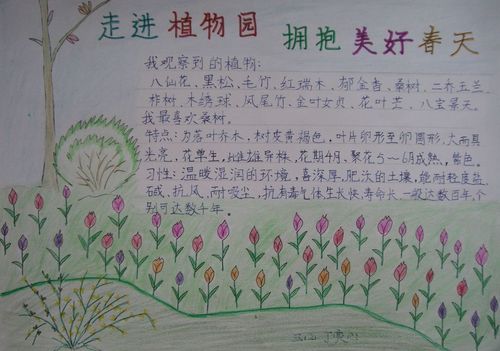 走进植物园 拥抱美好春天
我观察到的植物:
八仙花、黑松、毛竹、红瑞木、郁金香、桑树、二乔玉兰、
柞树、木绣球、凤尾竹、金叶女贞、花叶芒、八宝景天。
我最喜欢桑树。
特点:为落叶乔木,树皮黄褐色。叶片卵形至卵圆形,大而具
光亮,花单生,雌雄异株,花期4月,聚花5~6月成熟,紫色。
习性:温暖湿润的环境,喜深厚,肥沃的土壤,能耐轻度盐
碱,抗风,耐吸尘,抗有毒气体生长快,寿命长,一般达数百年,个
别可达数千年。